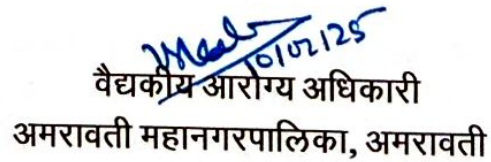 10/02/25
वैद्यकीय आरोग्य अधिकारी
अमरावती महानगरपालिका, अमरावती